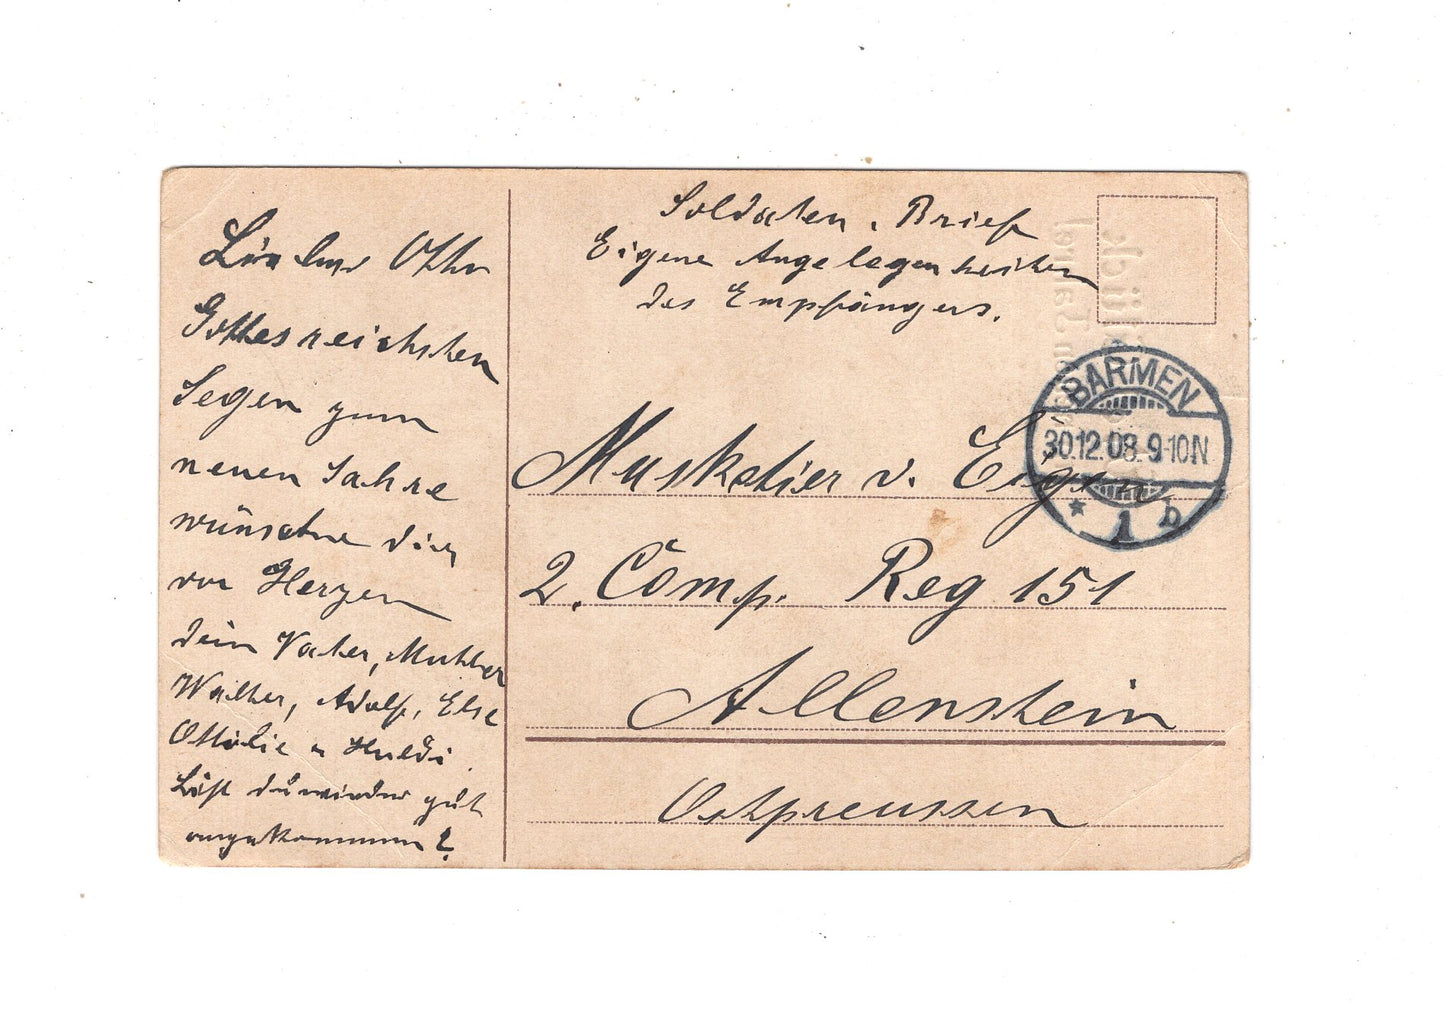 Lieber Otto
Gottes reichsten
Segen zum
neuen Jahre
wünschen dir
von Herzen
dein Vater, Mutter
Walther, Adolf, Else
Ottilie u Huldi
Bist du wieder gut
angekommen?
Soldaten. Brief
Eigene Angelegenheiten
des Empfängers.
BARMEN
30.12.08.9-10N
* 1 b
Musketier v. Eigen
2. Comp. Reg 151
Allenstein
Ostpreussen